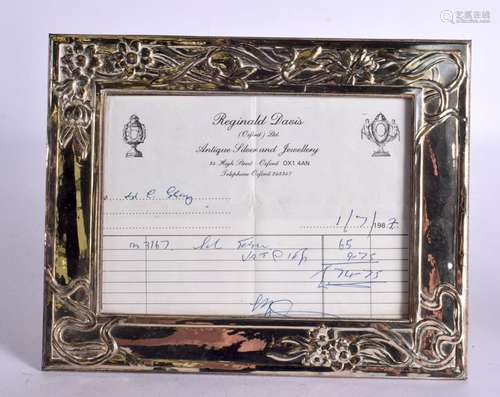 艺狐在线
Reginald Davis
(Oxford) Ltd
Antique Silver and Jewellery
34 High Street Oxford OX1 4AN
Telephone Oxford 248347
1/7/1987
m 3167 65
VAT @ 15% 9.75
74.75